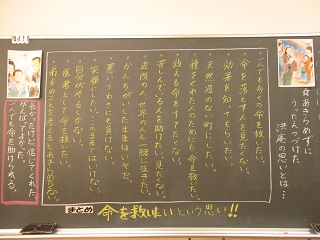 ☆あきらめずに
うったえつづけた
洪庵の思いとは…
一人でも多くの命を救いたい。
・命を落とす人を見たくない。
・効果を知ってもらいたい。
・天然痘のない町にしたい。
・種をくれた人のためにも命を救いたい。
・救える命をすてたくない。
・苦しんでいる人を助けたい。見たくない。
・近所の人、世界の人と一緒に生きたい。
・かんちがいしたままはいやだ。
・悪いうわさにも負けない。
・実際にしたい。このままではいけない。
・自分がやるしかない。
・医者として命を救いたい。
・弟子のことを考えるとあきらめちゃだめ。
長かったけど、信じてくれた。
がんばってよかった。
人でも命を助けられる。
まとめ 命を救いたいという思い!!